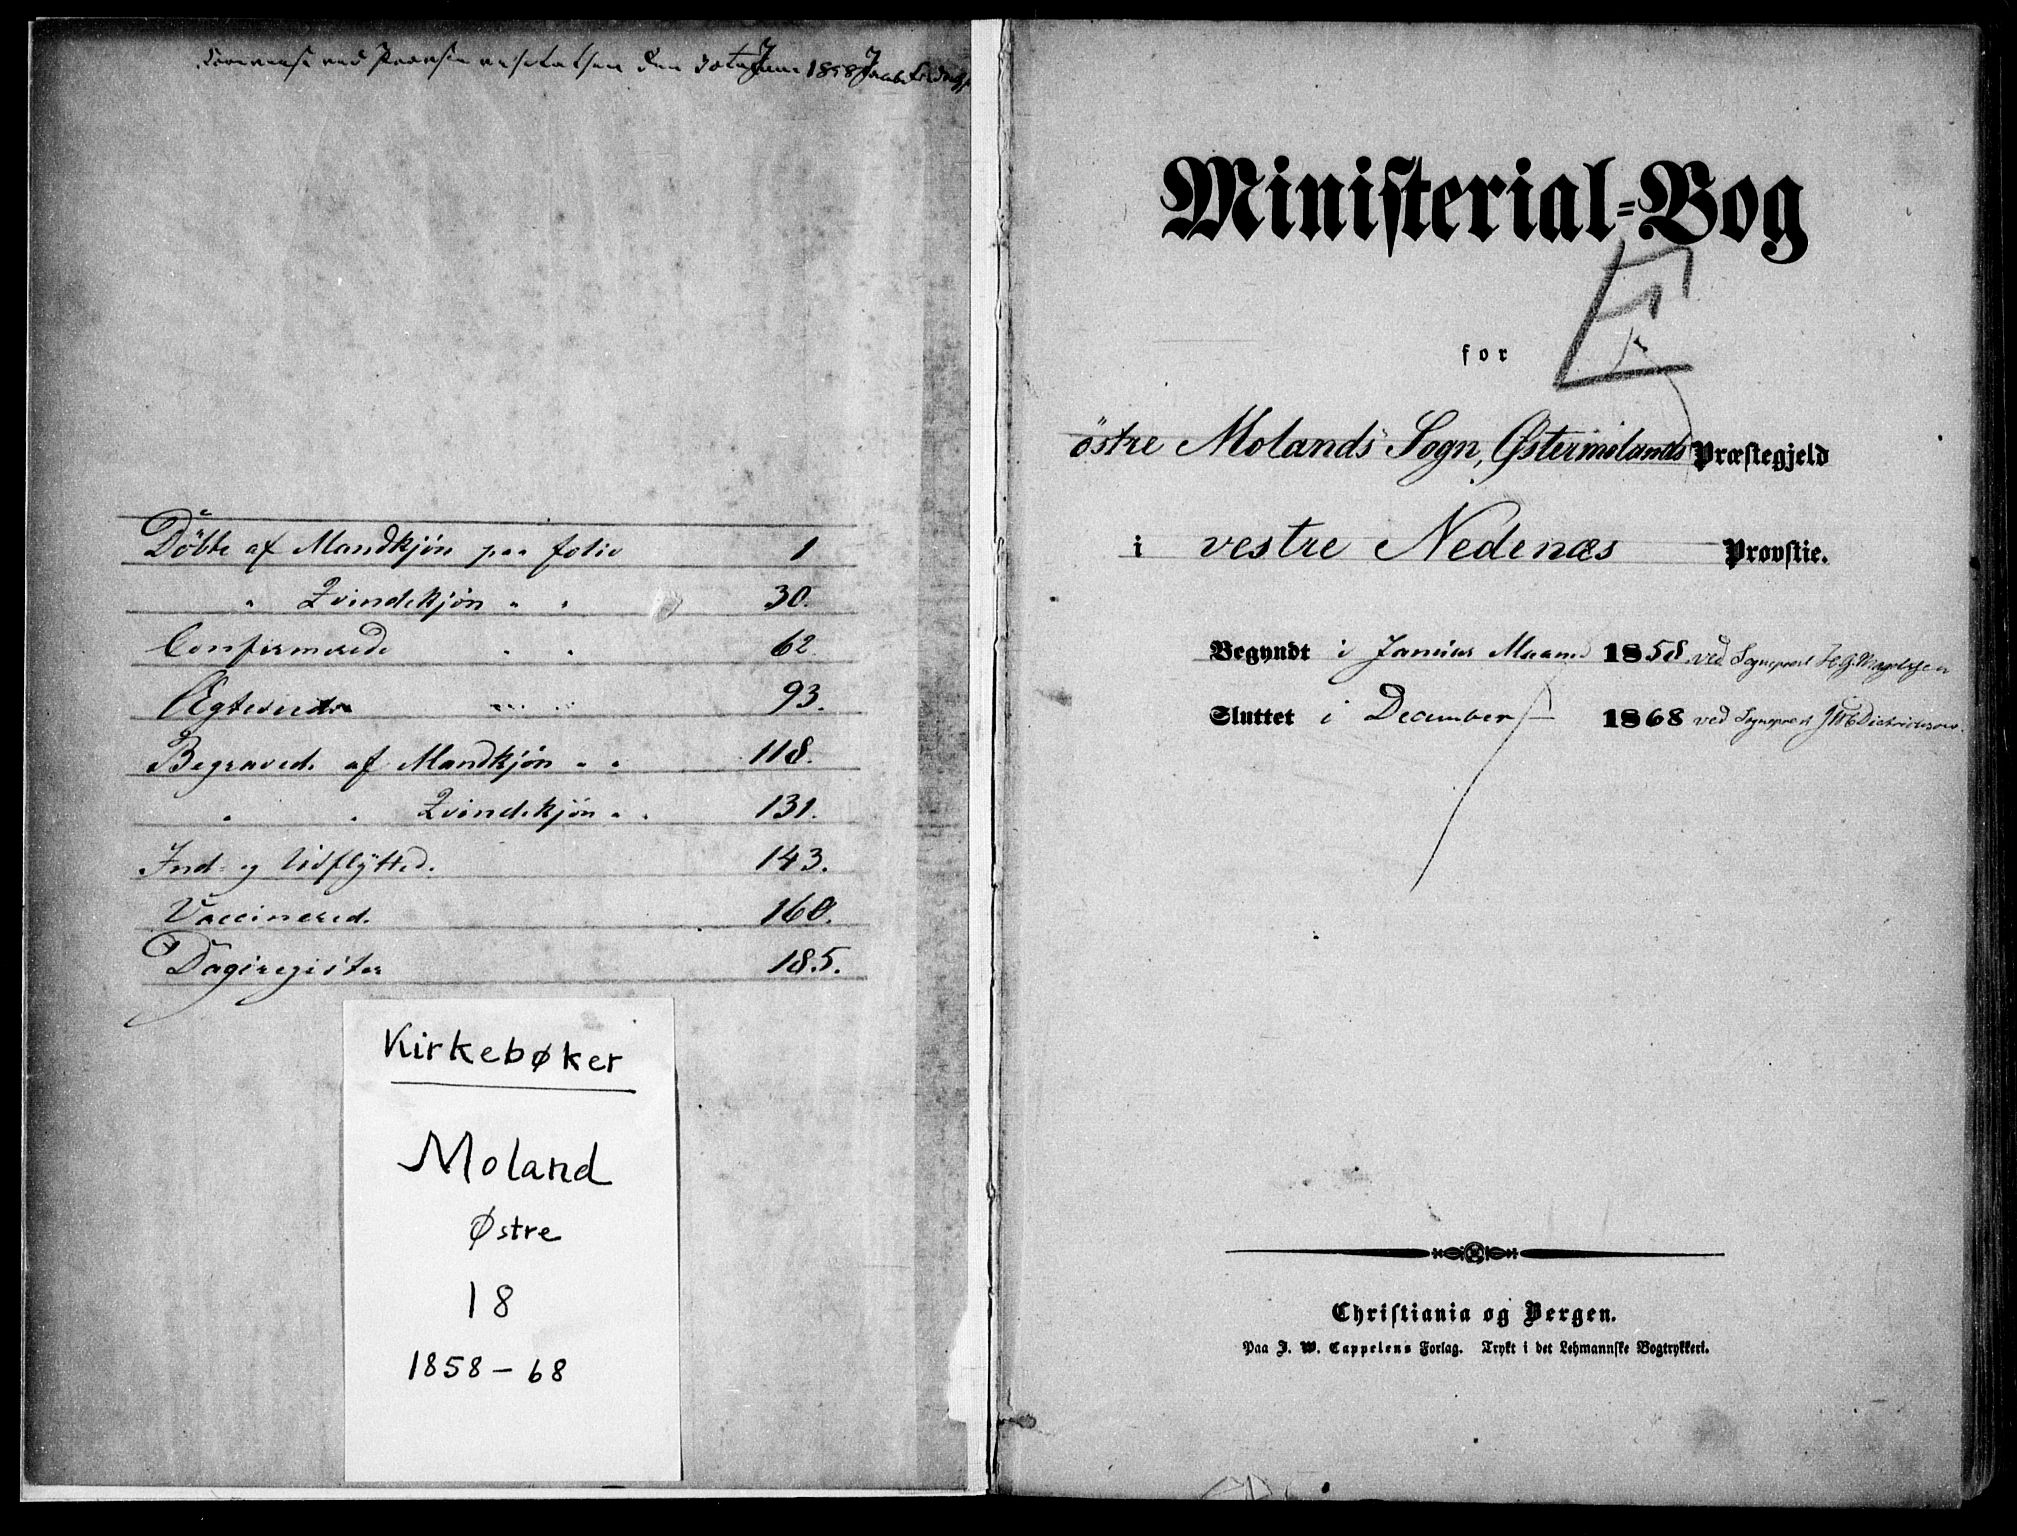 den 30te Juni 1858
Döbte af Mandkjön paa folio 1
" Qvindekjön " " 30.
Confirmerede " " 62.
Ægteviede " " 93.
Begravede af Mandkjön " " 118.
" " Qvindekjön " " 131.
Ind- og Udflÿttede. 143.
Vaccinered. 160.
Dagsregister 185.
Kirkebøker
Moland
Østre
18
1858-68
Ministerial-Bog
for
östre Molands Sogn, Østermolands Præstegjeld
i vestre Nedenæs Provstie.
Begyndt i Januar Maaned 1858 ved Sognepræst
Sluttet i December 1868 ved Sognepræst
Christiania og Bergen.
Paa J. W. Cappelens Forlag. Trykt i det Lehmannske Bogtrykkeri.